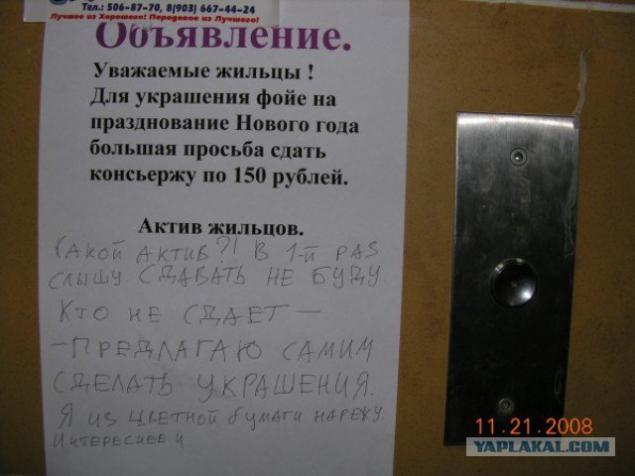 Тел.: 506-87-70, 8(903) 667-44-24
Лучшее из Хорошего! Передовое из Лучшего!
Объявление.
Уважаемые жильцы !
Для украшения фойе на
празднование Нового года
большая просьба сдать
консьержу по 150 рублей.
Актив жильцов.
КАКОЙ АКТИВ?! В 1-Й РАЗ
СЛЫШУ. СДАВАТЬ НЕ БУДУ.
КТО НЕ СДАЕТ —
— ПРЕДЛАГАЮ САМИМ
СДЕЛАТЬ УКРАШЕНИЯ.
Я ИЗ ЦВЕТНОЙ бУМАГИ НАРЕЖУ.
ИНТЕРЕСНЕЕ И
11.21.2008
YAPLAKAL.COM